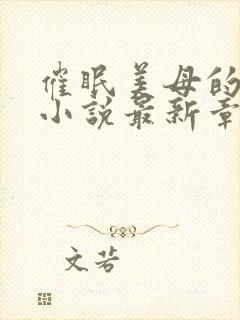 催眠美母的
小说最新章
文若